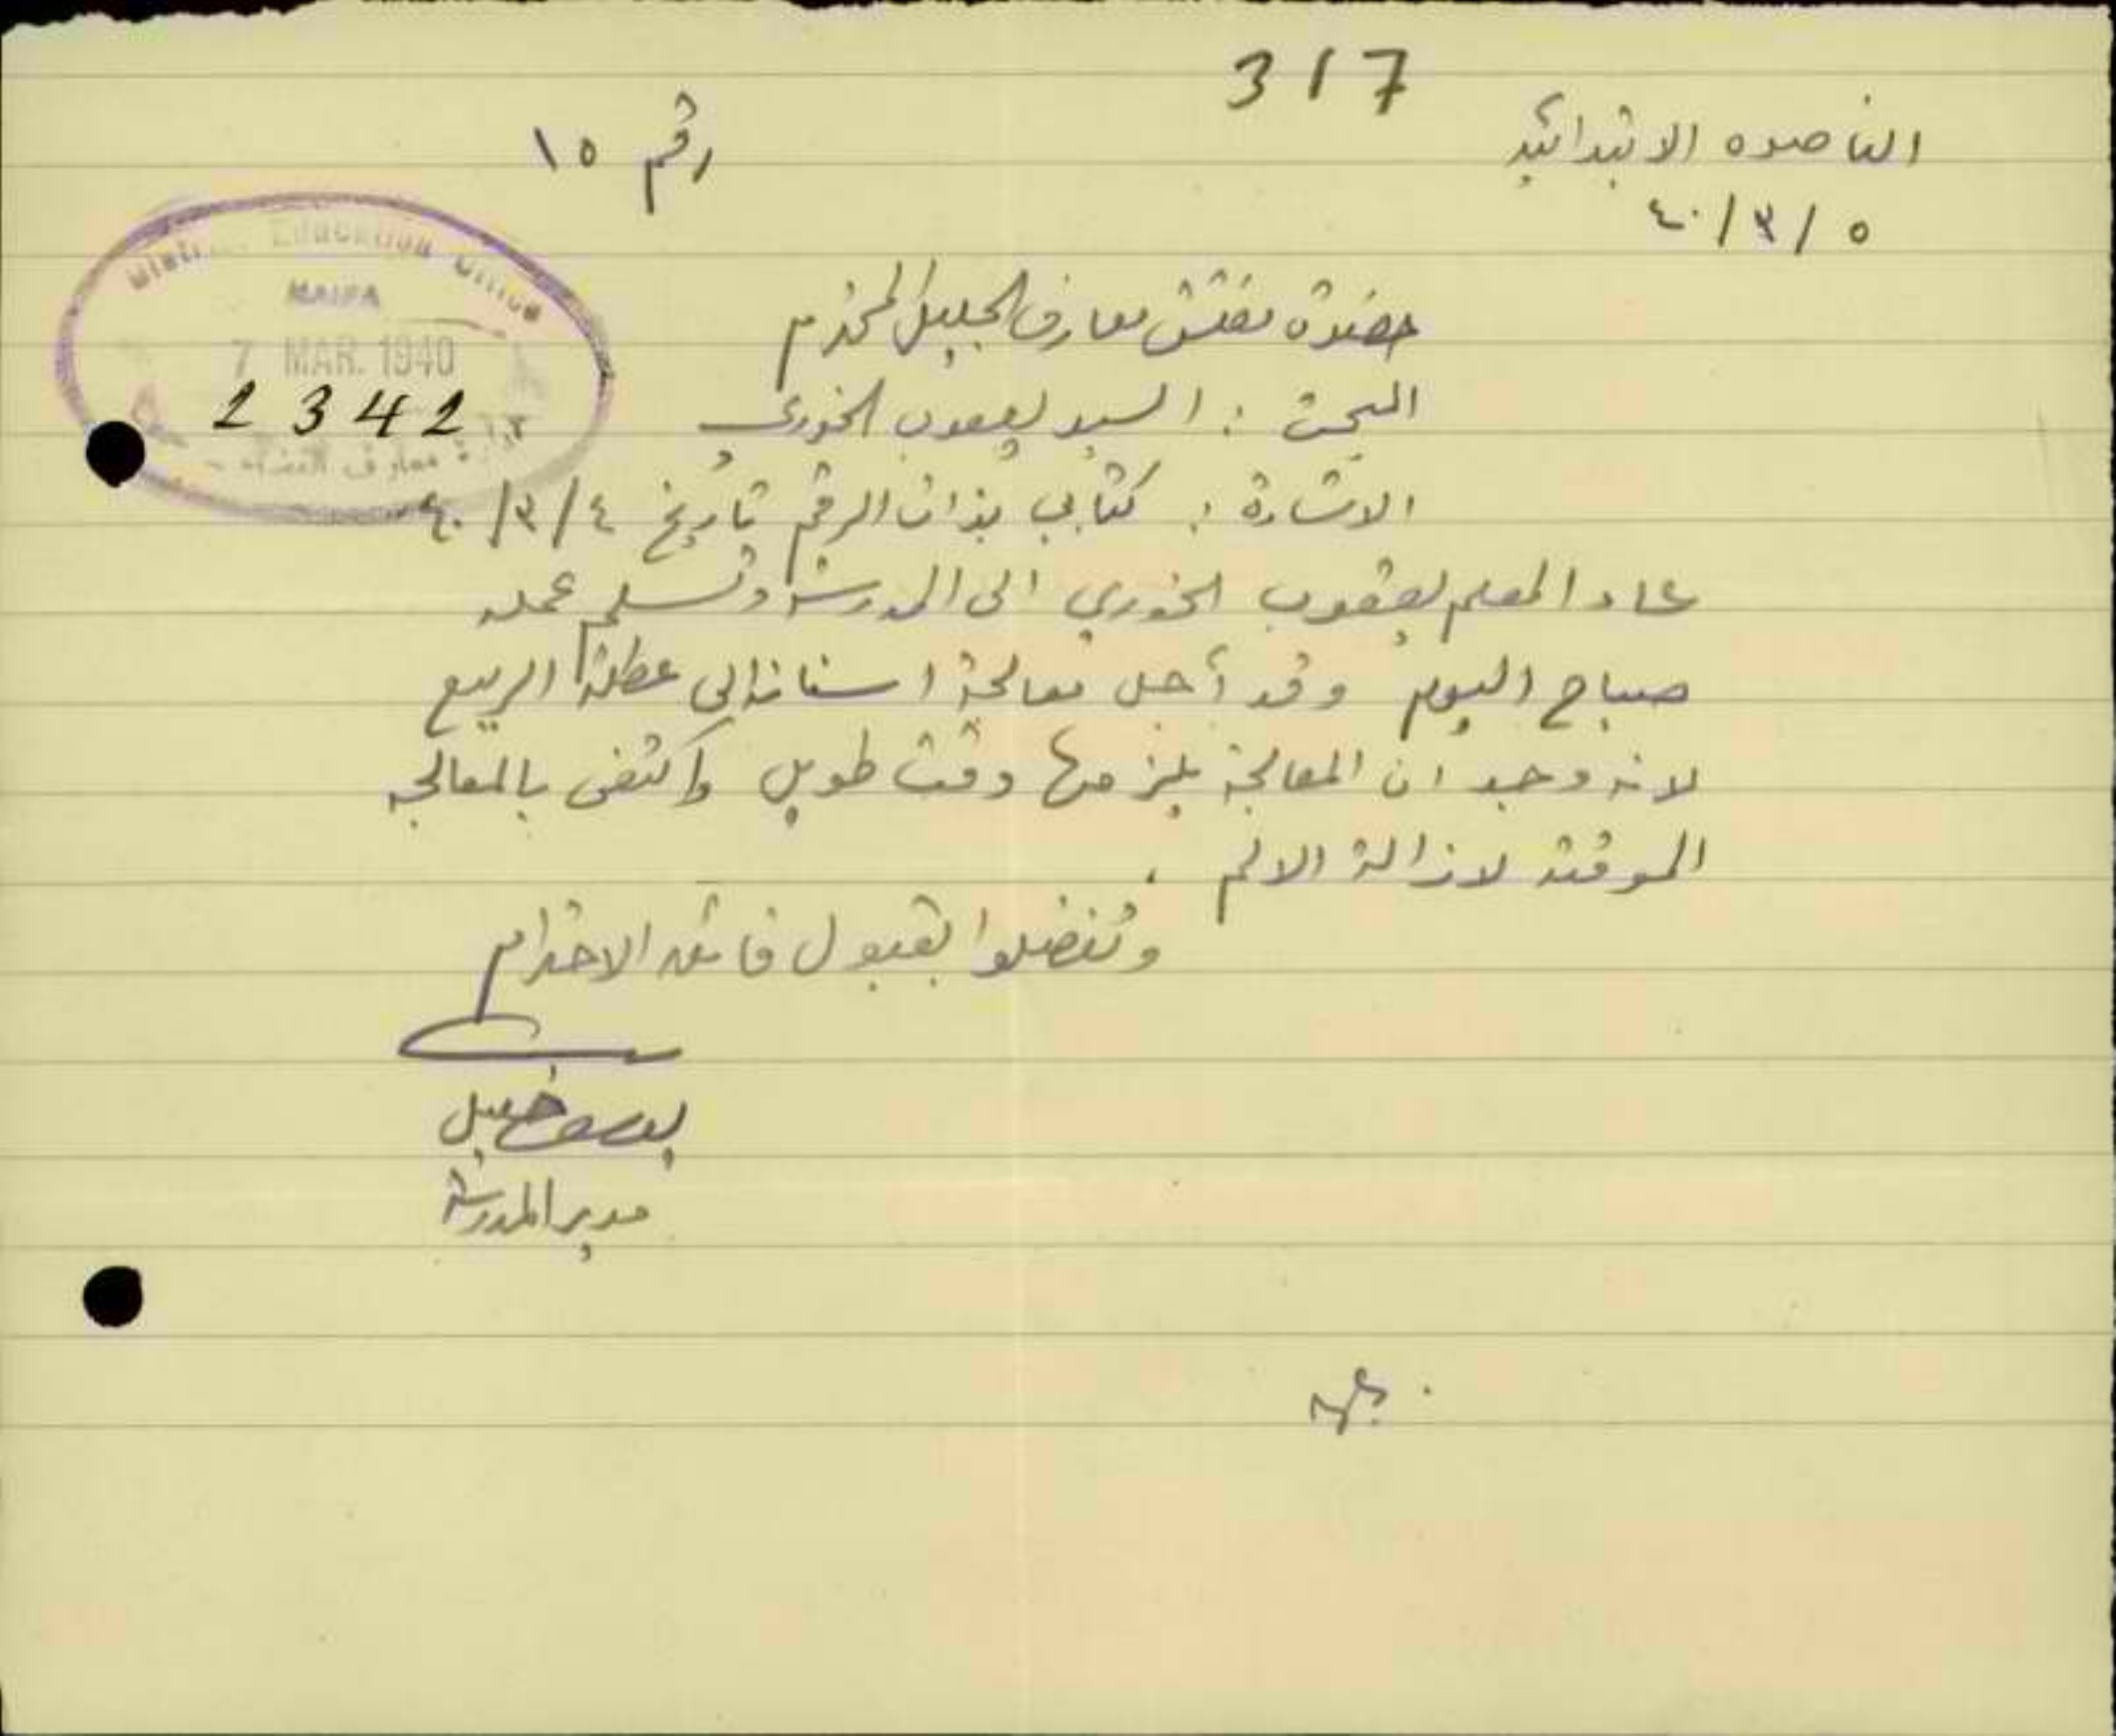 317
الناصره الابتدائية
رقم ١٥
٥/٣/٤٠
District Education Office
HAIFA
7 MAR. 1940
2342
معارف
حضرة مفتش معارف الجليل المحترم
البحث : السيد يعقوب الخوري
الاشارة : كتابي بذات الرقم تاريخ ٤/٣/٤٠
عاد المعلم يعقوب الخوري الى المدرسة وتسلم عمله
صباح اليوم وقد أجل معالجة اسنانه الى عطلة الربيع
لانه وجد ان المعالجة يلزمها وقت طويل واكتفى بالمعالجه
الموقته لازالة الالم .
وتفضلوا بقبول فائق الاحترام
يوسف خليل
مدير المدرسة